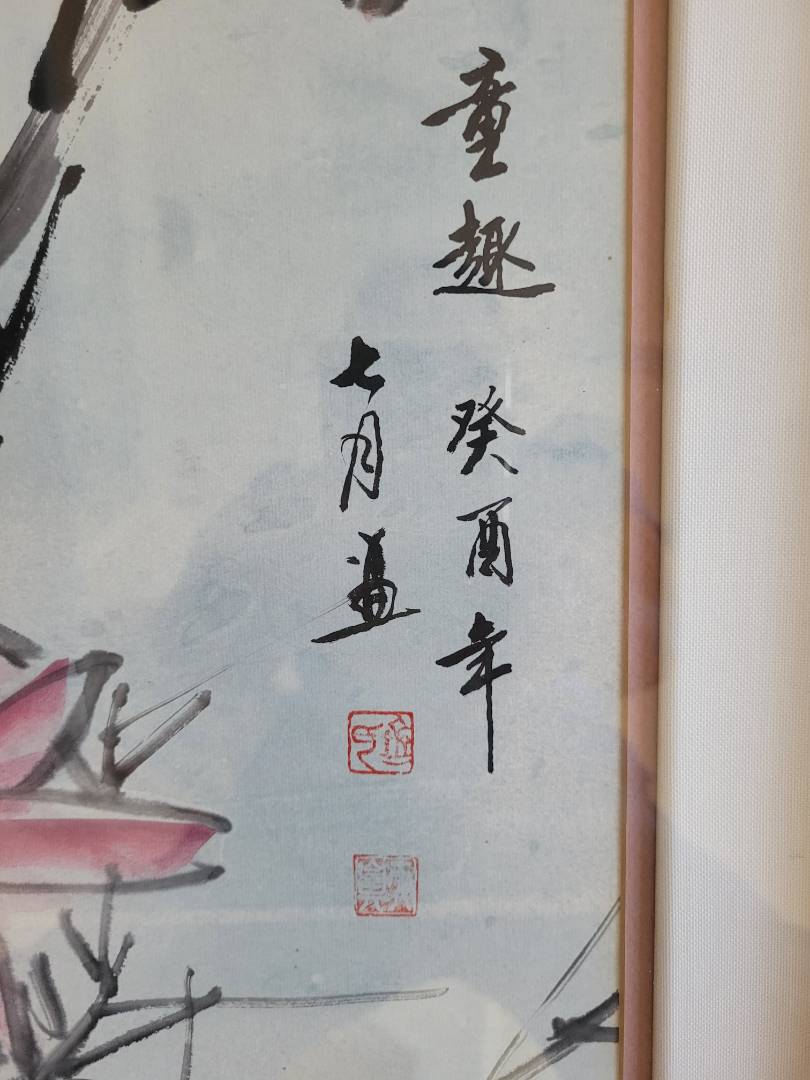 童趣 癸酉年
七月